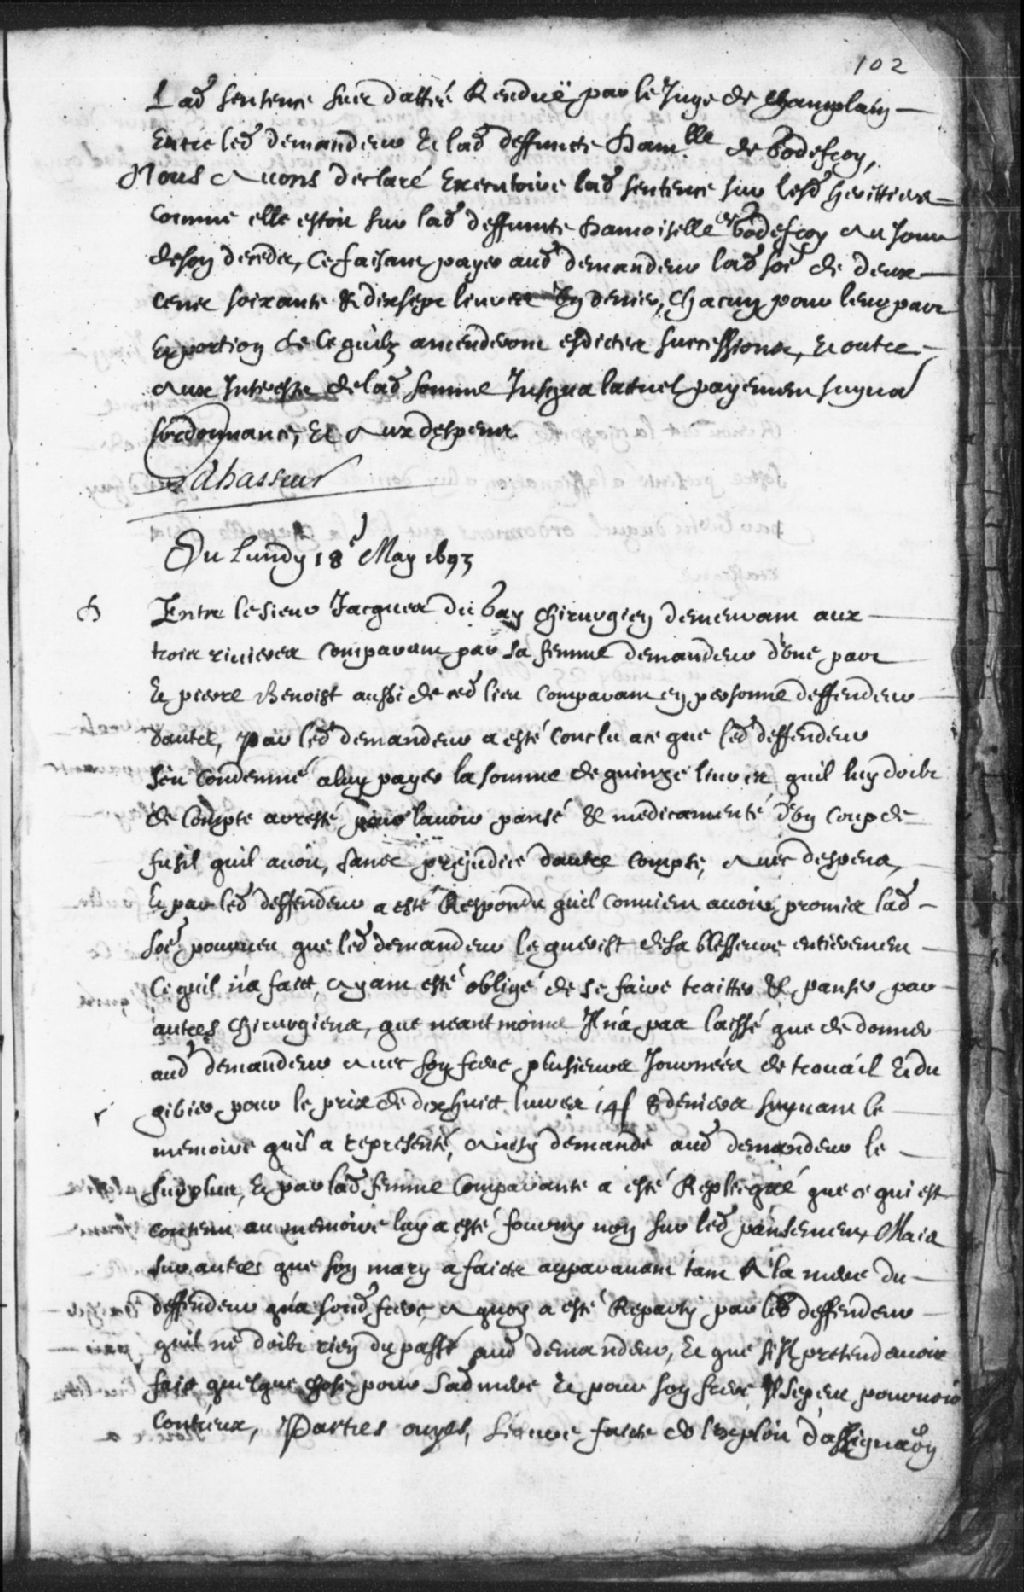 102
Lad sentence susdattée Renduë par le Juge de Champlain
Entre led demandeur Et lad deffuncte Damlle de Godefroy,
Nous Avons declaré Executoire lad sentence sur lesd heritiers
Comme elle estoit sur lad deffuncte Damoiselle de Godefroy Au Jour
de son deceds, Ce faisant payer aud demandeur lad soe de deux
cens soixante & dixsept livres un denier, Chacun pour leur part
Et portion de ce quilz amenderont esdictes successions, Et outre
Aux Interests de lad somme Jusqua lactuel payement suyvat
lordonnance, Et Aux despens
Lechasseur
Du Lundy 18e May 1693
Entre le Sieur Jacques du bay Chirurgien demeurant aux
trois rivieres Comparant par sa femme demandeur d'une part
Et pierre Benoist aussi de ced lieu Comparant en personne deffendeur
dautre, Par led demandeur a esté Conclu a ce que led deffendeur
soit Condemné a luy payer la somme de quinze livres quil luy doibt
de Compte arresté pour lavoir pansé & medicamenté d'un Coup de
fusil quil avoit, sans prejudice dautre Compte, Avec despens,
Et par led deffendeur a esté Respondu quil Convient avoir promis lad
soe pourveu que led demandeur le guerist de sa blesseure entierement
Ce quil n'a faict, Ayant esté obligé de se faire traitter & panser par
autres Chirurgiens, que neantmoins Il n'a pas laissé que de donner
aud demandeur Avec son frere plusieurs Journées de travail Et du
gibier pour le prix de dixhuict livres 14s 8 deniers suyvant le
memoire quil a representé, Ainsy demande aud demandeur le
surplus, Et par lad femme Comparante a esté Replicqué que ce qui est
contenu au memoire luy a esté fourny non sur led pansement, Mais
sur autres que son mary a faicts auparavant tant A la mere du
deffendeur qu'a sond frere, A quoy a esté Reparty par led deffendeur
quil ne doibt rien du passé aud demandeur, Et que s'Il pretend avoir
fait quelque chose pour sad mere Et pour son frere Il se peut pourvoir
Contr'eux, Parties ouyes, Lecture faicte de l'exploit d'assignaon